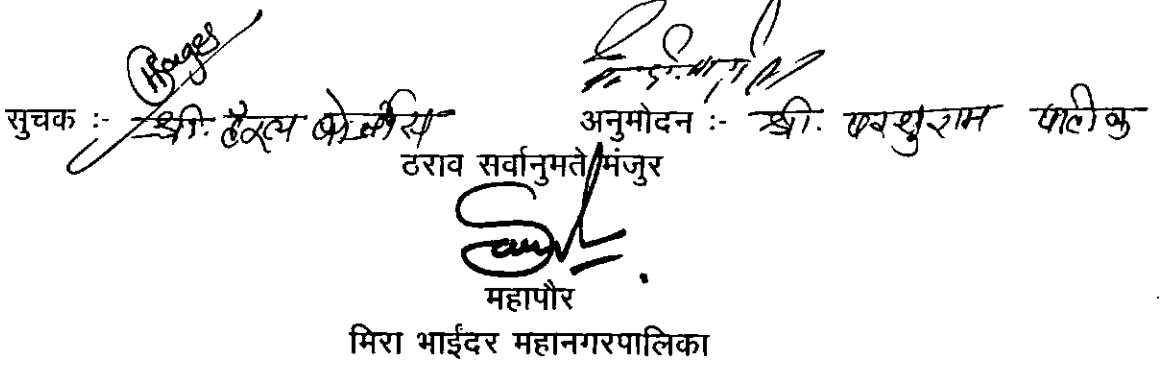 सुचक :- श्री. हॅरल बोर्जीस अनुमोदन :- श्री. परशुराम पाटील
ठराव सर्वानुमते मंजुर
महापौर
मिरा भाईंदर महानगरपालिका